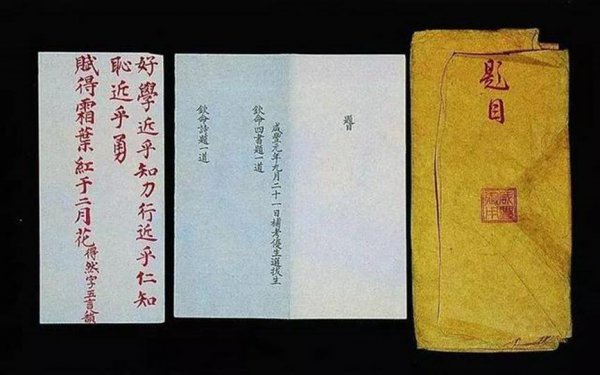 題目
題目
咸豐元年九月二十一日補考優生選拔生
欽命四書題一道
欽命詩題一道
好學近乎知力行近乎仁知
恥近乎勇
賦得霜葉紅于二月花 得然字五言八韻